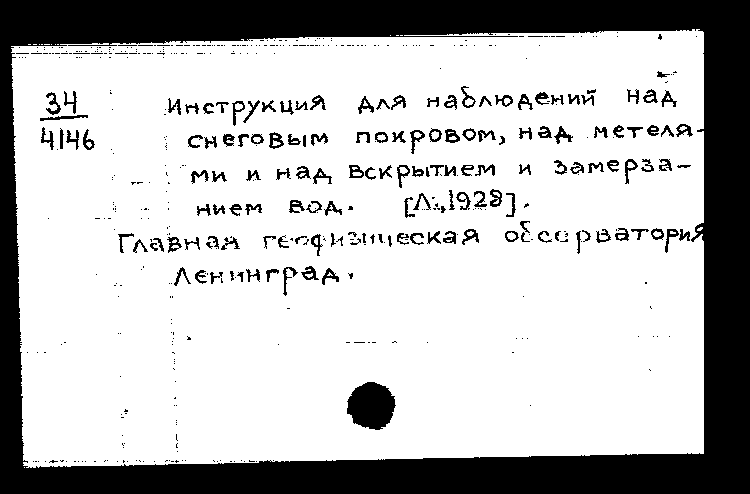 34
4146
Инструкция для наблюдений над
снеговым покровом, над метеля-
ми и над вскрытием и замерза-
нием вод. [Л., 1928].
Главная геофизическая обсерватория
Ленинград.